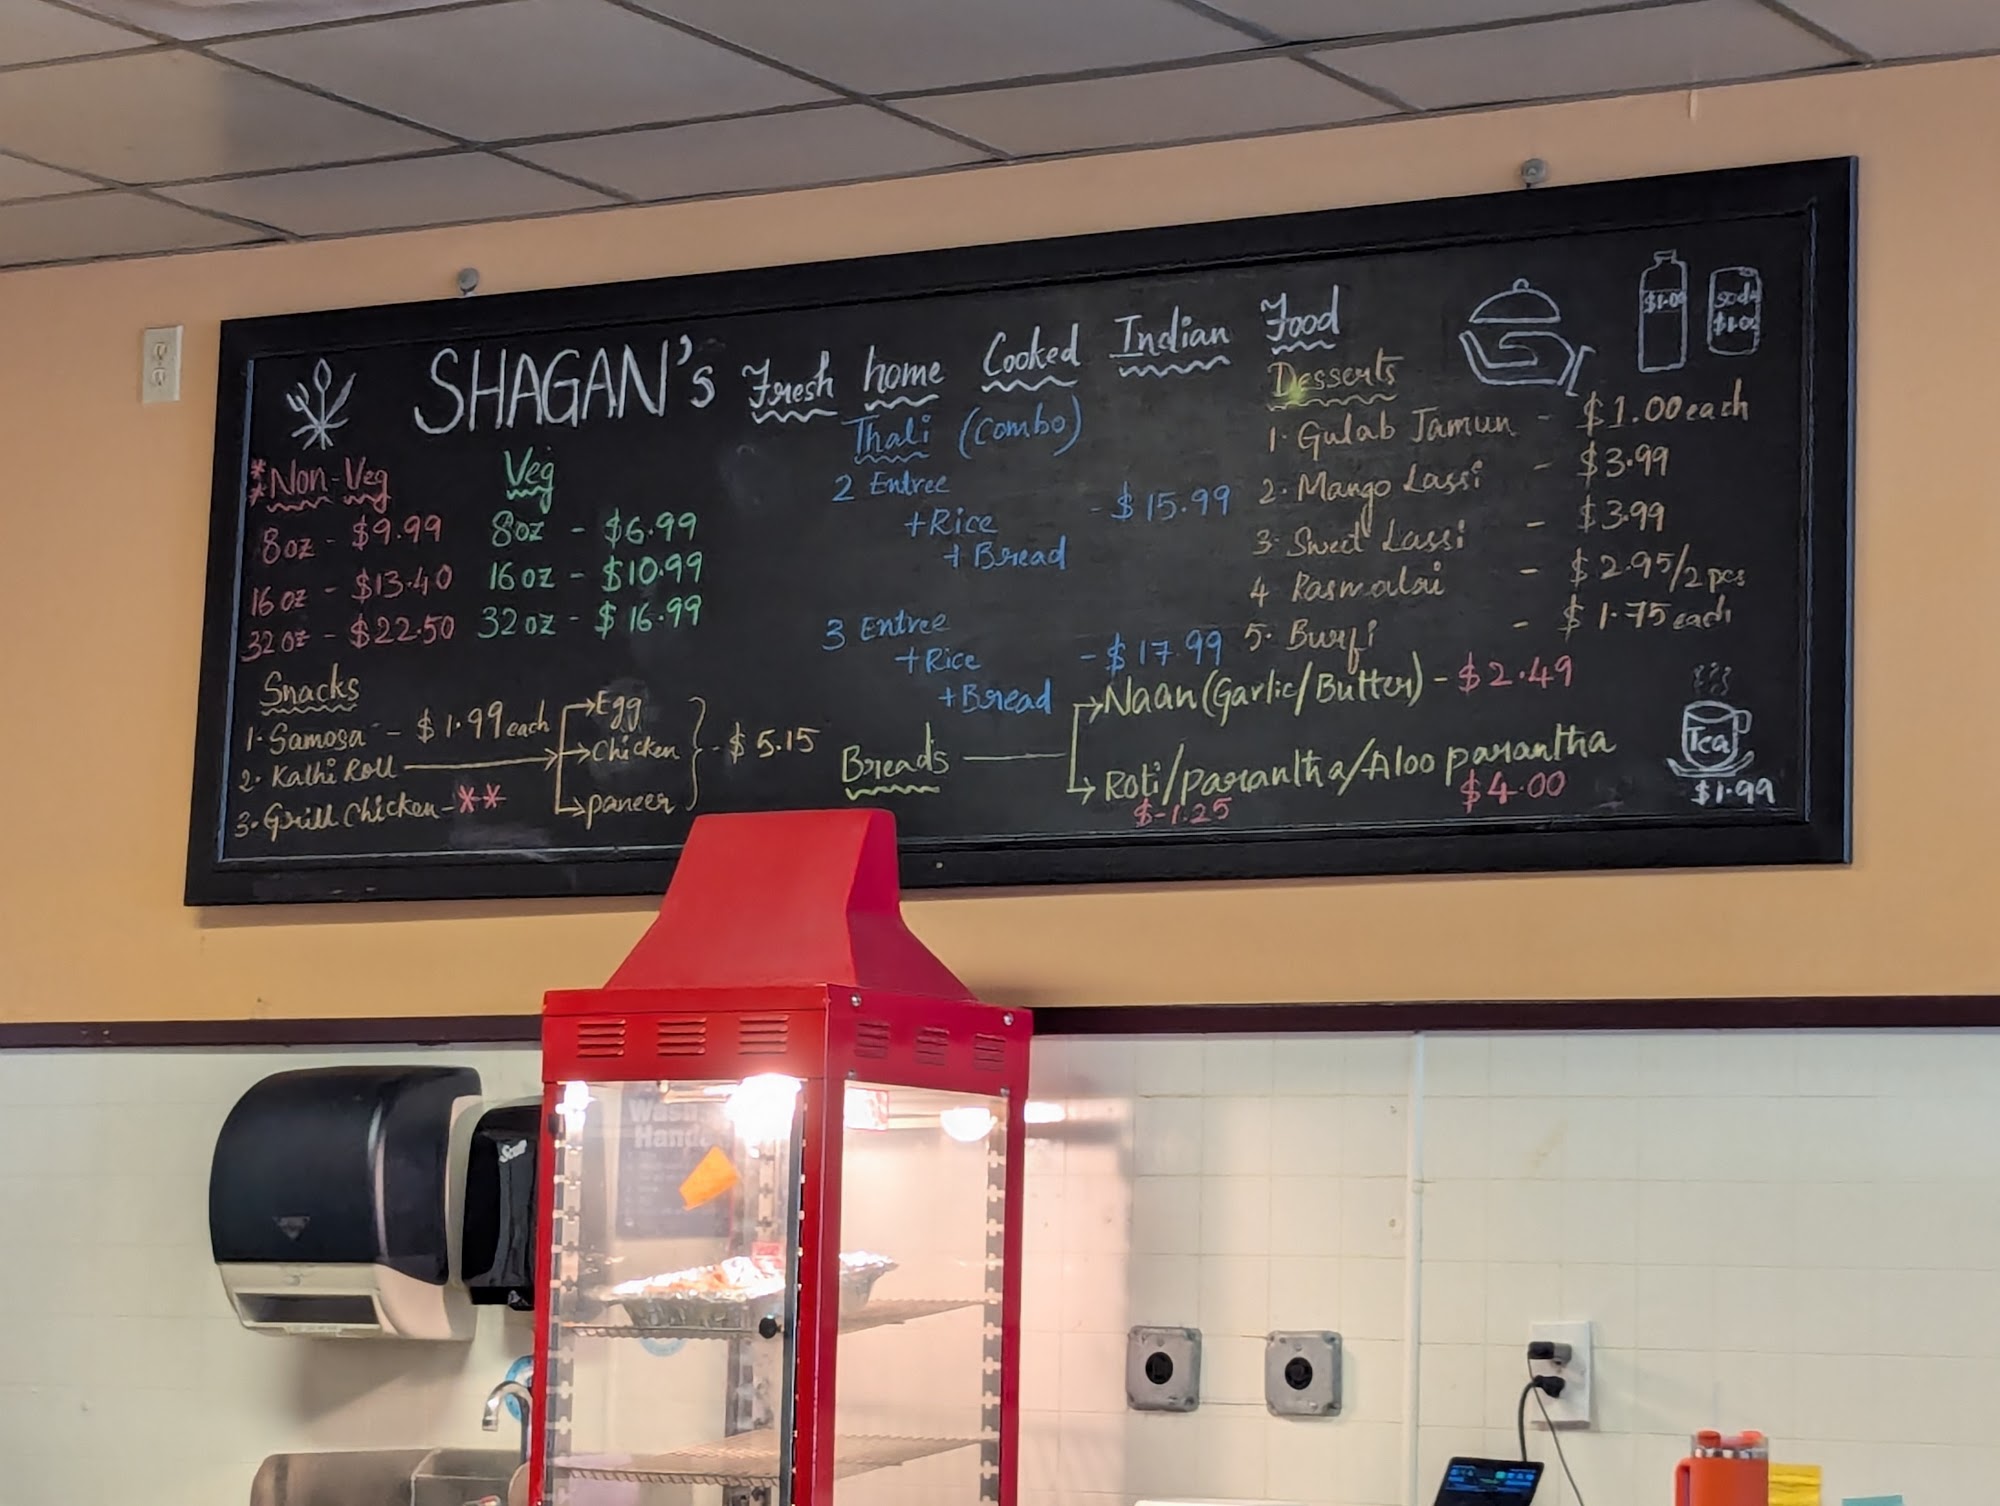 SHAGAN's Fresh home Cooked Indian Food
*Non-Veg
*
8oz - $9.99
16oz - $13.40
32oz - $22.50
Veg
8oz - $6.99
16oz - $10.99
32oz - $16.99
Snacks
1. Samosa - $1.99 each
2. Kathi Roll
Egg
Chicken
paneer
- $5.15
3. Grill Chicken - **
Thali (Combo)
2 Entree
+Rice - $15.99
+ Bread
3 Entree
+Rice - $17.99
+Bread
Breads
Naan (Garlic/Butter) - $2.49
Roti/parantha/Aloo parantha
$-1.25 $4.00
Desserts
1. Gulab Jamun - $1.00 each
2. Mango Lassi - $3.99
3. Sweet Lassi - $3.99
4 Rasmalai - $2.95/2pcs
5. Burfi - $1.75 each
$1.00
Soda
$1.00
Tea
$1.99
Wash
Hands
Scott